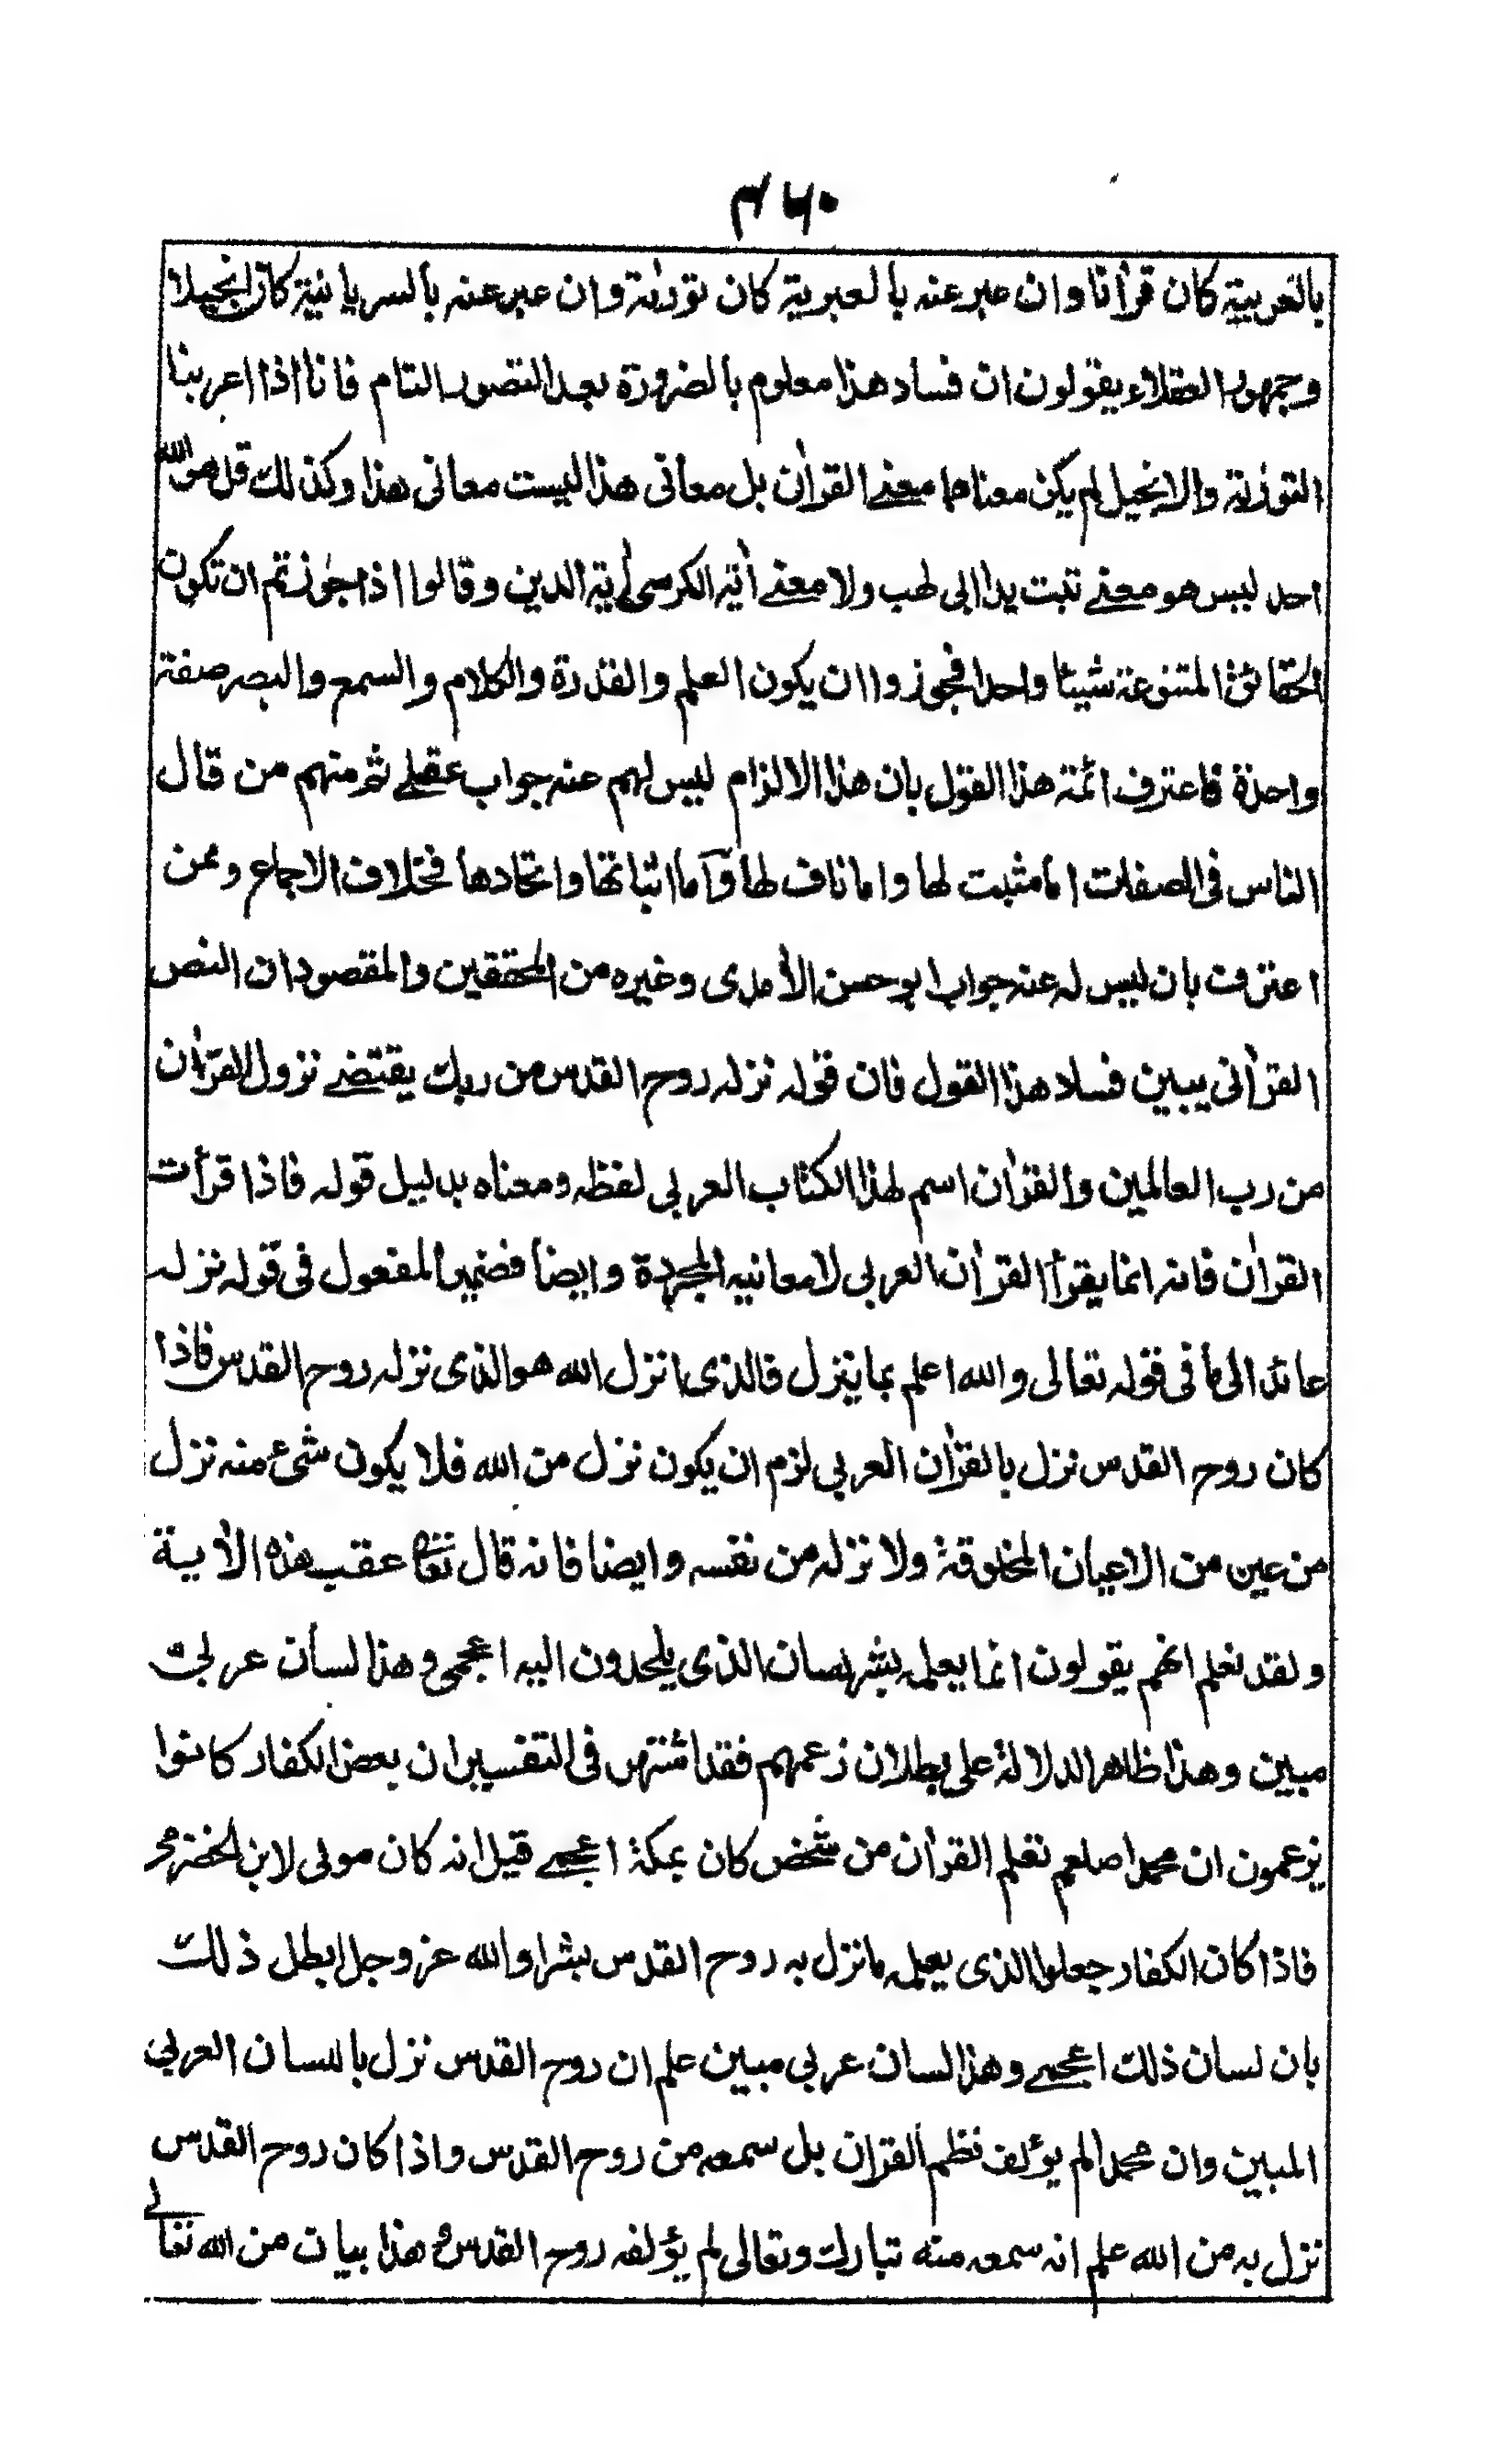 ۴۶۰
بالعربية كان قرأنا وان عبر عنه بالعبرية كان تورٰىة وان عبر عنه بالسريانية كان انجيلا
وجمهور العقلاء يقولون ان فساد هذا معلوم بالضرورة بعد التصور التام فانا اذا اعربنا
التورٰىة والانجيل لم يكن معناهما معنے القراٰن بل معانى هذا ليست معانى هذا وكذلك قل هو الله
احد ليس هو معنے تبت يدا ابى لهب ولا معنے اٰية الكرسى اٰية الدين وقالوا اذا جوزتم ان تكون
الحقائق المتنوعة شيئا واحدا فجوزوا ان يكون العلم والقدرة والكلام والسمع والبصر صفة
واحدة فاعترف ائمة هذا القول بان هذا الالزام ليس لهم عنه جواب عقلے ثم منهم من قال
الناس فى الصفات اما مثبت لها واما ناف لها وآما اثباتها واتحادها فخلاف الاجماع وممن
اعترف بان ليس له عنه جواب ابو حسن الأمدى وغيره من المحققين والمقصود ان النص
القراٰنى يبين فساد هذا القول فان قوله نزله روح القدس من ربك يقتضے نزول القراٰن
من رب العالمين والقراٰن اسم لهذا الكتاب العربى لفظه ومعناه بدليل قوله فاذا قرأت
القراٰن فانه انما يقرأ القراٰن العربى لا معانيه المجردة وايضا فضمير المفعول فى قوله نزله
عائد الى ما فى قوله تعالى والله اعلم بما ينزل فالذى انزل الله هو الذى نزله روح القدس فاذا
كان روح القدس نزل بالقراٰن العربى لزم ان يكون نزل من الله فلا يكون شىء منه نزل
من عين من الاعيان المخلوقة ولا نزله من نفسه وايضا فانه قال تعالى عقب هذه الاٰية
ولقد نعلم انهم يقولون انما يعلمه بشر لسان الذى يلحدون اليه اعجمى وهذا لسان عربى
مبين وهذا ظاهر الدلالة على بطلان زعمهم فقد اشتهر فى التفسير ان بعض الكفار كانوا
يزعمون ان محمدا صلعم تعلم القراٰن من شخص كان بمكة اعجمے قيل انه كان مولى لابن الحضرمى
فاذا كان الكفار جعلوا الذى يعلمه ما نزل به روح القدس بشرا والله عز وجل ابطل ذلك
بان لسان ذلك اعجمے وهذا لسان عربى مبين علم ان روح القدس نزل باللسان العربى
المبين وان محمدا لم يؤلف نظم القراٰن بل سمعه من روح القدس واذا كان روح القدس
نزل به من الله علم انه سمعه منه تبارك وتعالى لم يؤلفه روح القدس وهذا بيات من الله تعالے